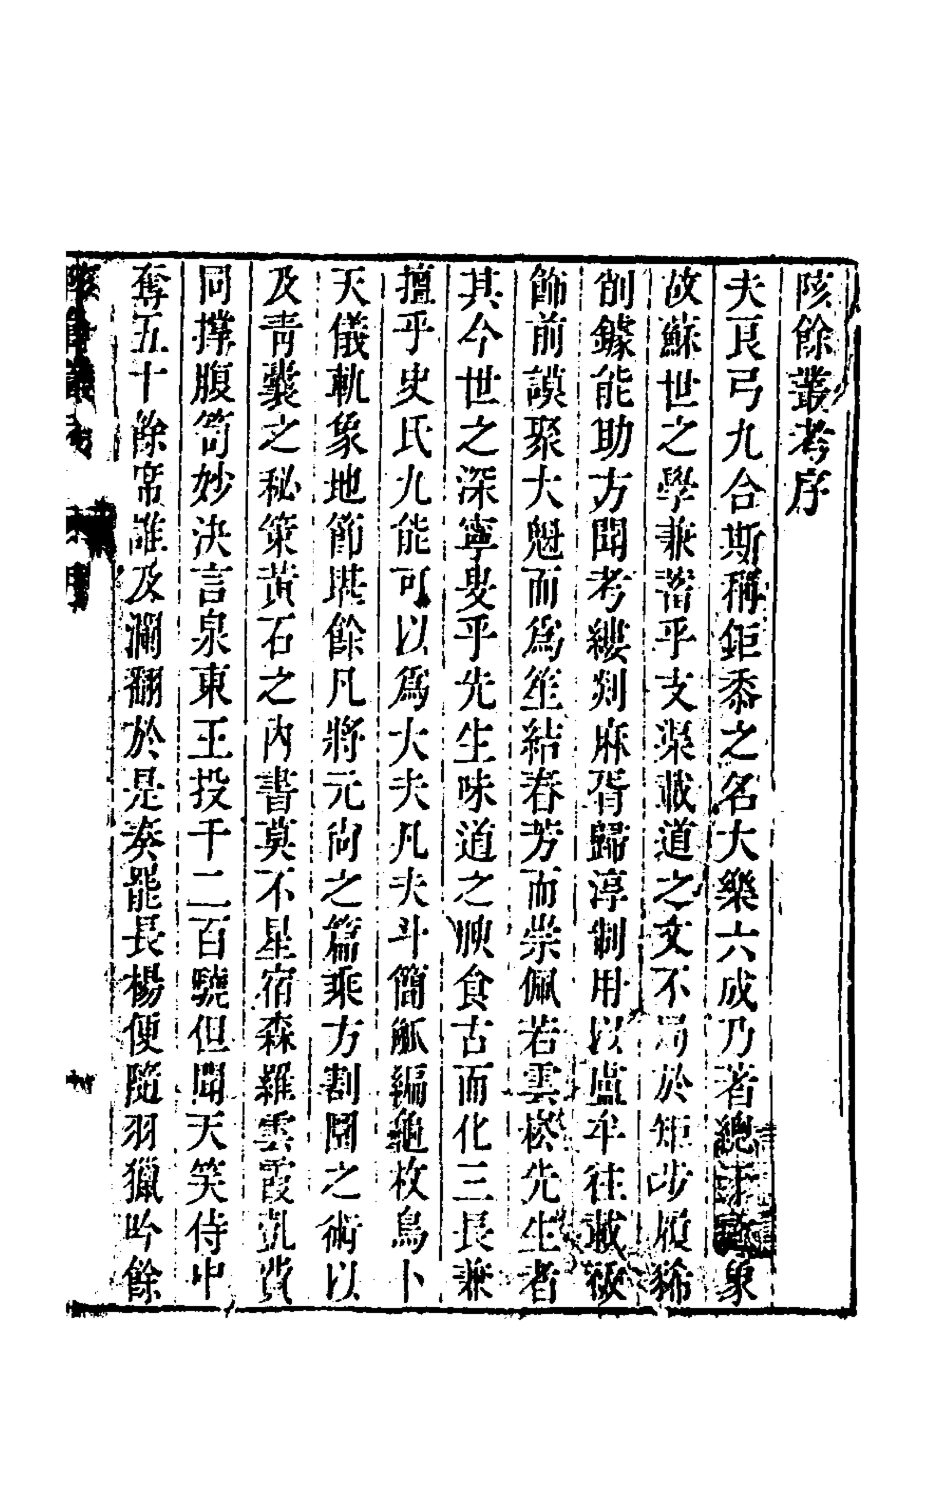 陔餘叢考序
夫良弓九合斯稱鉅黍之名大樂六成乃著總章象
故蘇世之學兼啻乎支渠載道之文不局於矩步履豨
削鐻能助方聞考縷剡麻胥歸淳制用以盧牟往載極
飾前謨聚大魁而爲笙結春芳而崇佩若雲崧先生者
其今世之深寧叟乎先生味道之腴食古而化三長兼
擅乎史氏九能可以爲大夫凡夫斗簡觚編龜枚鳥卜
天儀軌象地節堪餘凡將元尚之篇乘方割圜之術以
及青囊之秘策黃石之內書莫不星宿森羅雲霞凱費
同撑腹笥妙決言泉東王投千二百驍但聞天笑侍中
奪五十餘席誰及瀾翻於是奏罷長楊便隨羽獵吟餘